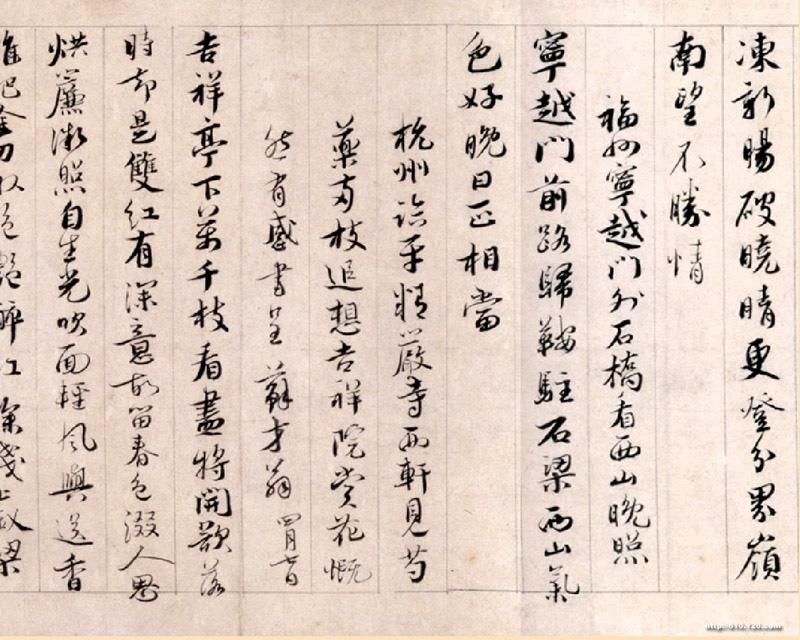 凍新陽破曉晴更登分界嶺
南望不勝情
福州寧越門外石橋看西山晚照
寧越門前路歸鞍駐石梁西山氣
色好晚日正相當
杭州臨平精嚴寺西軒見芍
藥兩枝追想吉祥院賞花慨
然有感書呈蘇才翁
吉祥亭下萬千枝看盡將開欲落
時却是雙紅有深意故留春色綴人思
烘簾微照自生光吹面輕風與送香
金刀收艷醉深淺上釵梁